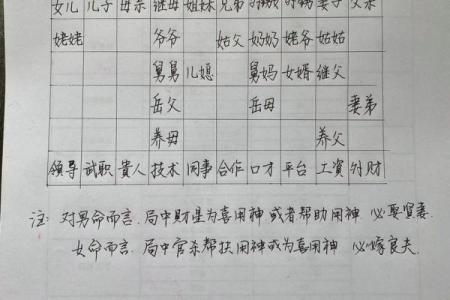 女儿 儿子 母亲 继母 姐妹 兄弟 妻子 父亲
姥姥 爷爷 姑父 奶奶 姥爷 姑姑
舅舅 儿媳 舅妈 女婿 继父
岳父 岳母 妻弟
养母 养父
领导 武职 贵人 技术 同事 合作 口才 平台 工资 外财
注: 对男命而言、局中财星为喜用神 或者帮助用神 必娶贤妻.
女命而言、局中官杀帮扶用神或为喜用神 必嫁良夫.